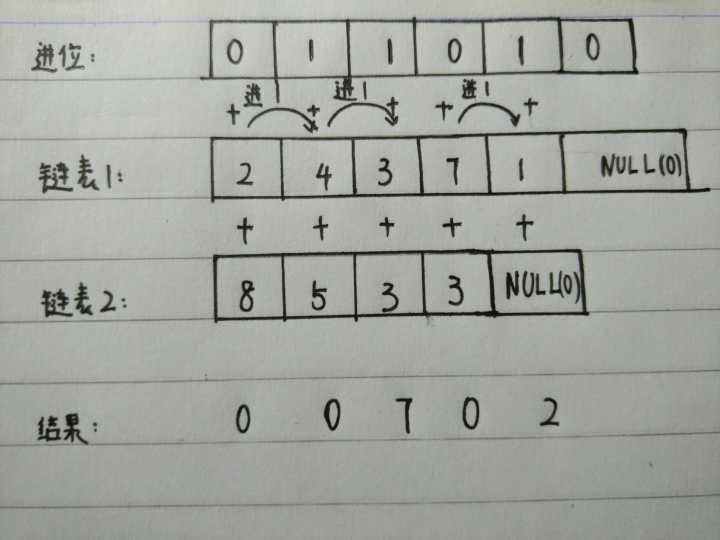 进位: 0 1 1 0 1 0
+ 进1 + 进1 + + 进1 +
链表1: 2 4 3 7 1 NULL(0)
+ + + + +
链表2: 8 5 3 3 NULL(0)
结果: 0 0 7 0 2